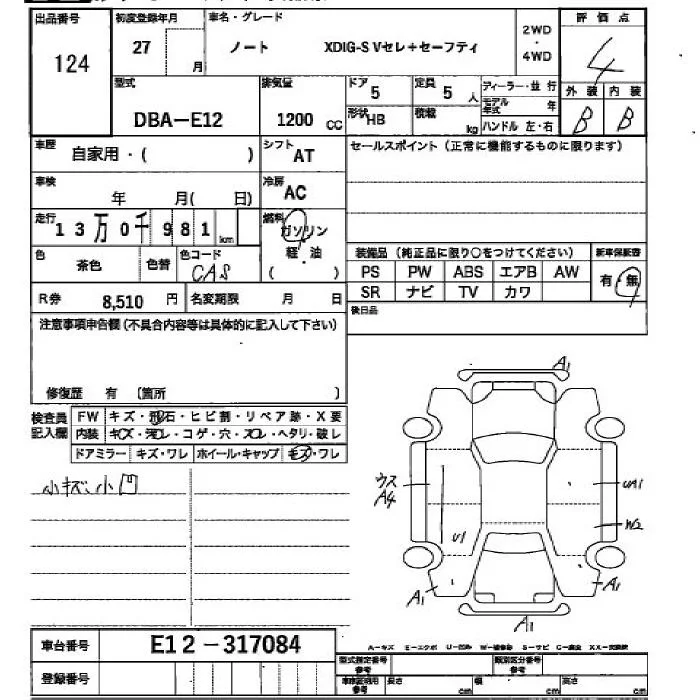 出品番号 初度登録年月 車名・グレード 2WD・4WD 評価点
124 27 月 ノート XDIG-S Vセレ+セーフティ 4
型式 排気量 ドア 定員 ディーラー・並行 外装 内装
DBA-E12 1200 cc 5 5人 モデル年式 年 B B
形状 HB 積載 kg ハンドル 左・右
車歴 自家用・( ) シフト AT セールスポイント(正常に機能するものに限ります)
車検 年 月( 日) 冷房 AC
走行 13万0千981km 燃料 ガソリン
軽・油
( )
色 茶色 色替 色コード CAS
装備品(純正品に限り○をつけてください) 新車保証書
PS PW ABS エアB AW 有・無
SR ナビ TV カワ
R券 8,510 円 名変期限 月 日 後日品
注意事項申告欄(不具合内容等は具体的に記入して下さい)
修復歴 有 〔箇所 〕
検査員記入欄 FW キズ・飛石・ヒビ割・リペア跡・X要
内装 キズ・汚レ・コゲ・穴・スレ・ヘタリ・破レ
ドアミラー キズ・ワレ ホイール・キャップ キズ・ワレ
小キズ、小凹
A1
ウス
A4
UA1
W2
U1
A1
A1
A1
車台番号 E12-317084
登録番号
A-キズ E-エクボ U-凹み W-補修跡 S-サビ C-腐食 XX-交換跡
型式指定番号 参考 類別区分番号 参考
車庫証明用 参考 長さ cm 幅 cm 高さ cm